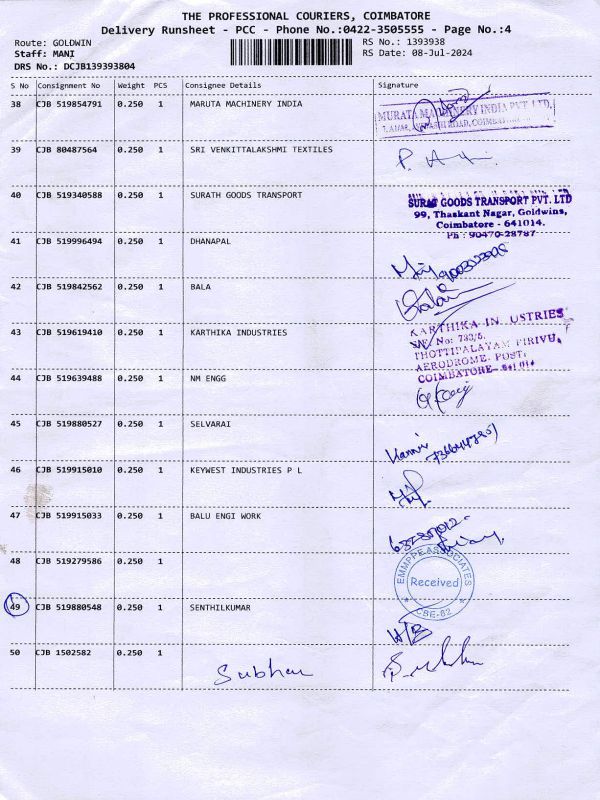 THE PROFESSIONAL COURIERS, COIMBATORE
Delivery Runsheet - PCC - Phone No.:0422-3505555 - Page No.:4
Route: GOLDWIN RS No.: 1393938
Staff: MANI RS Date: 08-Jul-2024
DRS No.: DCJB139393804
S No Consignment No Weight PCS Consignee Details Signature
38 CJB 519854791 0.250 1 MARUTA MACHINERY INDIA
MURATA MACHINERY INDIA PVT. LTD.
39 CJB 80487564 0.250 1 SRI VENKITTALAKSHMI TEXTILES
40 CJB 519340588 0.250 1 SURATH GOODS TRANSPORT
SURAT GOODS TRANSPORT PVT. LTD
99, Thaskant Nagar, Goldwins,
Coimbatore - 641014.
Ph : 90470-28787
41 CJB 519996494 0.250 1 DHANAPAL
42 CJB 519842562 0.250 1 BALA
43 CJB 519619410 0.250 1 KARTHIKA INDUSTRIES
KARTHIKA IN USTRIES
SF. No: 783/5,
THOTTIPALAYAM PIRIVU,
AERODROME. POST,
COIMBATORE - 641 014
44 CJB 519639488 0.250 1 NM ENGG
45 CJB 519880527 0.250 1 SELVARAI
46 CJB 519915010 0.250 1 KEYWEST INDUSTRIES P L
47 CJB 519915033 0.250 1 BALU ENGI WORK
48 CJB 519279586 0.250 1
EMMPPE ASSOCIATES
Received
CBE-62
49 CJB 519880548 0.250 1 SENTHILKUMAR
50 CJB 1502582 0.250 1
Subhan